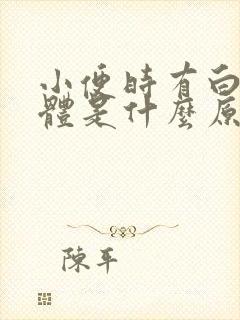 小便時有白
體是什麼原
陳平